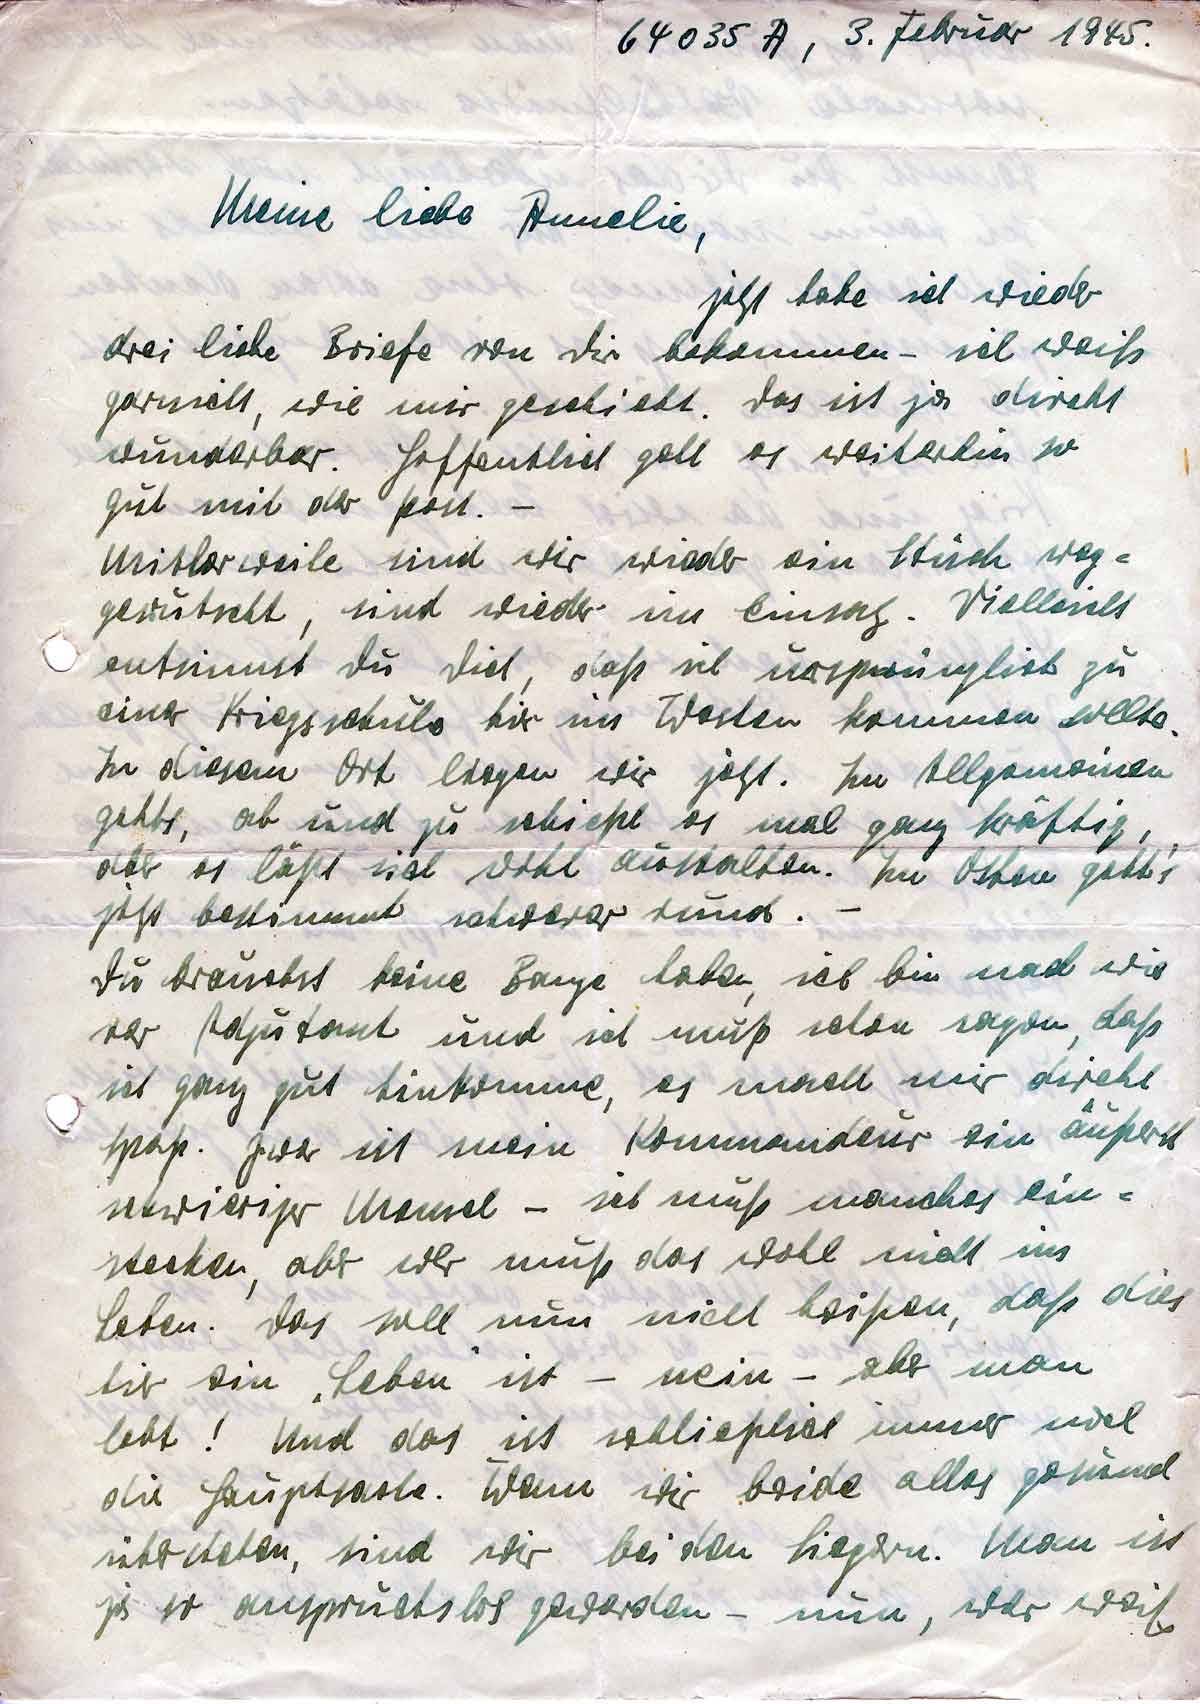 64035 A, 3. Februar 1945.
Meine liebe Annelie,
jetzt habe ich wieder
drei liebe Briefe von Dir bekommen – ich weiß
garnicht, wie mir geschieht. Das ist ja direkt
wunderbar. Hoffentlich geht es weiterhin so
gut mit der Post. –
Mittlerweile sind wir wieder ein Stück weg-
gerutscht, sind wieder im Einsatz. Vielleicht
entsinnst Du Dich, daß ich ursprünglich zu
einer Kriegsschule hier im Westen kommen sollte.
In diesem Ort liegen wir jetzt. Im Allgemeinen
gehts, ab und zu schießt es mal ganz kräftig,
aber es läßt sich wohl aushalten. Im Osten geht's
jetzt bestimmt schwerer rund. –
Du brauchst keine Bange haben, ich bin nach wie
vor Adjutant und ich muß schon sagen, daß
ich ganz gut hinkomme, es macht mir direkt
Spaß. Zwar ist mein Kommandeur ein äußerst
schwieriger Mensch – ich muß manches ein-
stecken, aber wer muß das wohl nicht im
Leben. Das soll nun nicht heißen, daß dies
hier ein „Leben" ist – nein – aber man
lebt! Und das ist schließlich immer noch
die Hauptsache. Wenn wir beide alles gesund
überstehen, sind wir bei den Siegern. Man ist
ja so anspruchslos geworden – nun, wer weiß